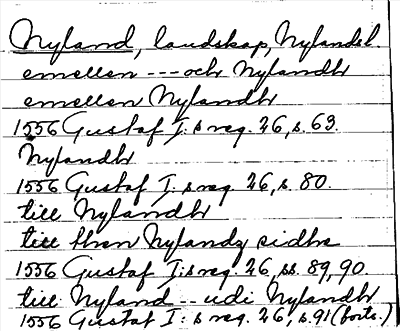 Nyland, landskap, Nylandh
emellen --- och Nylandh
emellen Nylandh
1556 Gustaf I:s reg. 26, s. 63.
Nylandh
1556 Gustaf I:s reg. 26, s. 80.
till Nylandh
till then Nylandz sidhe
1556 Gustaf I:s reg. 26, ss. 89, 90.
till Nyland -- udi Nylandh
1556 Gustaf I:s reg. 26, s. 91 (forts.)